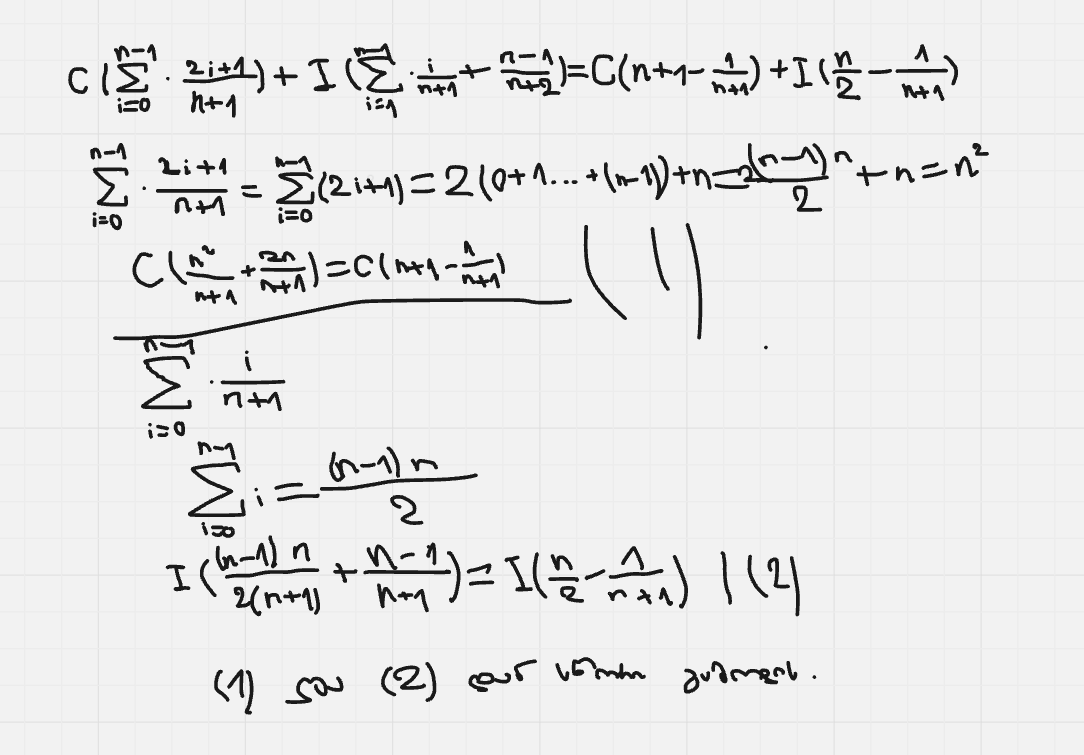 C(∑_{i=0}^{n-1} · \frac{2i+1}{n+1}) + I(∑_{i=1}^{n-1} · \frac{i}{n+1} + \frac{n-1}{n+2}) = C(n+1 - \frac{1}{n+1}) + I(\frac{n}{2} - \frac{1}{n+1})
∑_{i=0}^{n-1} · \frac{2i+1}{n+1} = ∑_{i=0}^{n-1} (2i+1) = 2(0+1...+(n-1)) + n = 2\frac{(n-1)n}{2} + n = n^2
C(\frac{n^2}{n+1} + \frac{2n}{n+1}) = C(n+1 - \frac{1}{n+1}) | (1)
∑_{i=0}^{n-1} · \frac{i}{n+1}
∑_{i=0}^{n-1} i = \frac{(n-1)n}{2}
I(\frac{(n-1)n}{2(n+1)} + \frac{n-1}{n+1}) = I(\frac{n}{2} - \frac{1}{n+1}) | (2)
(1) და (2)